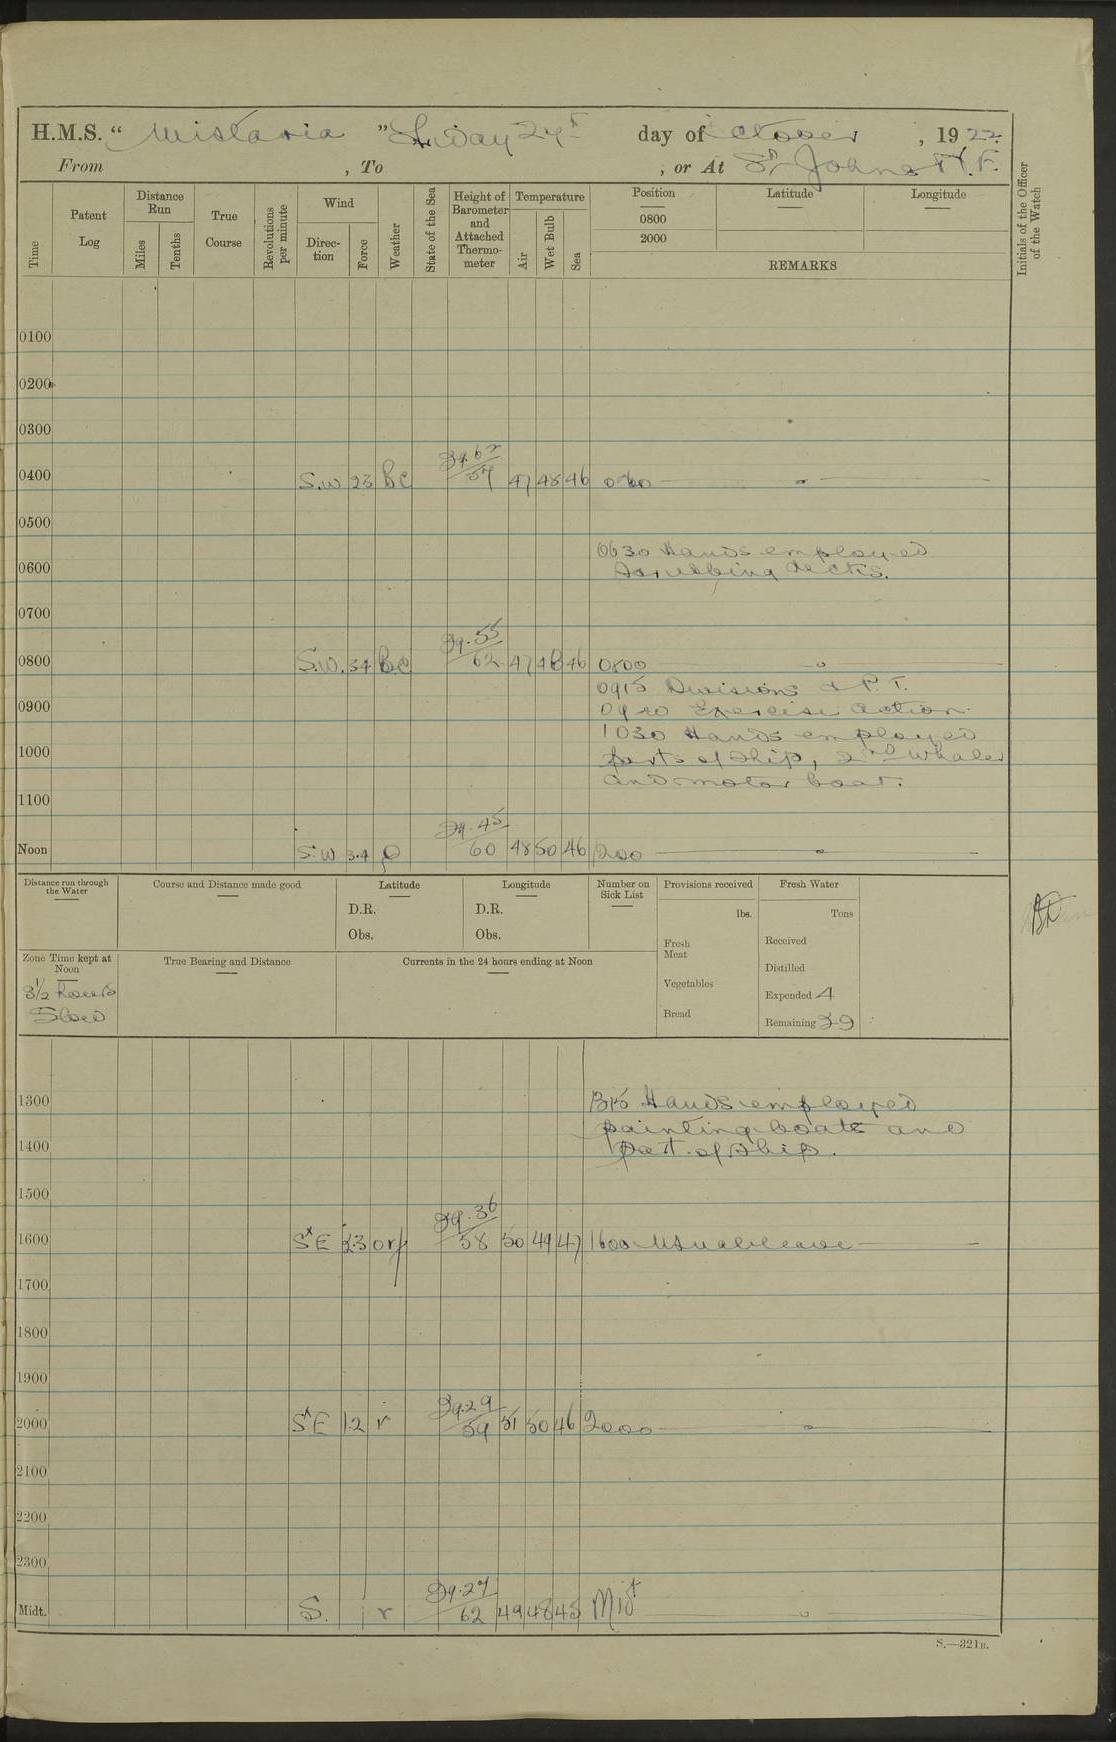 H.M.S. “ Wistaria ” day 27th day of October , 1922.
From , To , or At St Johns N.F.
Time
Patent Log
Distance Run
Miles
Tenths
True Course
Revolutions per minute
Wind
Direc-tion
Force
Weather
State of the Sea
Height of Barometer and Attached Thermo-meter
Temperature
Air
Wet Bulb
Sea
Position
0800
2000
Latitude
Longitude
REMARKS
Initials of the Officer of the Watch
0100
0200
0300
0400 S.W 23 BC 57 47 48 46
0500
0630 Hands employed
0600 Scrubbing decks.
0700
0800 S.W. 34 BC 29.55 62 47 48 46 0800
0915 Divisions & P.T.
0900 0920 Exercise action.
1030 Hands employed
1000 parts of ship, 2nd whaler
and motor boat.
1100
Noon S.W 3.4 O 29.45 60 48 50 46 1200
Distance run through the Water
Course and Distance made good
Latitude
D.R.
Obs.
Longitude
D.R.
Obs.
Number on Sick List
Provisions received
lbs.
Fresh Meat
Vegetables
Bread
Fresh Water
Tons
Received
Distilled
Expended 4
Remaining 39
Zone Time kept at Noon
3½ hours
Slow
True Bearing and Distance
Currents in the 24 hours ending at Noon
1300 1315 Hands employed
painting boats and
1400 part of ship.
1500
1600 SxE 2.3 29.36 58 50 49 47 1600 Usual leave
1700
1800
1900
2000 SxE 1.2 r 29.29 59 51 50 46 2000
2100
2200
2300
Midt. S. 1 r 29.27 62 49 48 45 Midt
S.—321B.